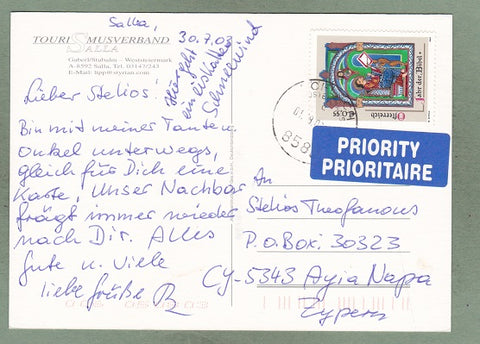 TOURISMUSVERBAND
SALLA
Gaberl/Stubalm - Weststeiermark
A-8592 Salla, Tel. 03147/243
E-Mail: lipp@styrian.com
Salla,
30.7.03
Hier geht
ein eiskalter
Schneewind
Lieber Stelios!
Bin mit meiner Tante u.
Onkel unterwegs,
gleich für Dich eine
Karte, Unser Nachbar
frägt immer wieder
nach Dir. Alles
Gute u. Viele
liebe Grüße
Jahr der Bibel
€0,55
Österreich
858
PRIORITY
PRIORITAIRE
An
Stelios Theofanous
P.o.Box: 30323
CY-5343 Ayia Napa
Zypern